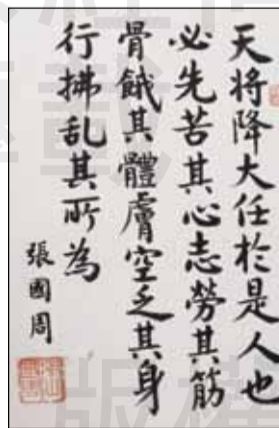 天将降大任於是人也
必先苦其心志勞其筋
骨餓其體膚空乏其身
行拂乱其所為
張國周